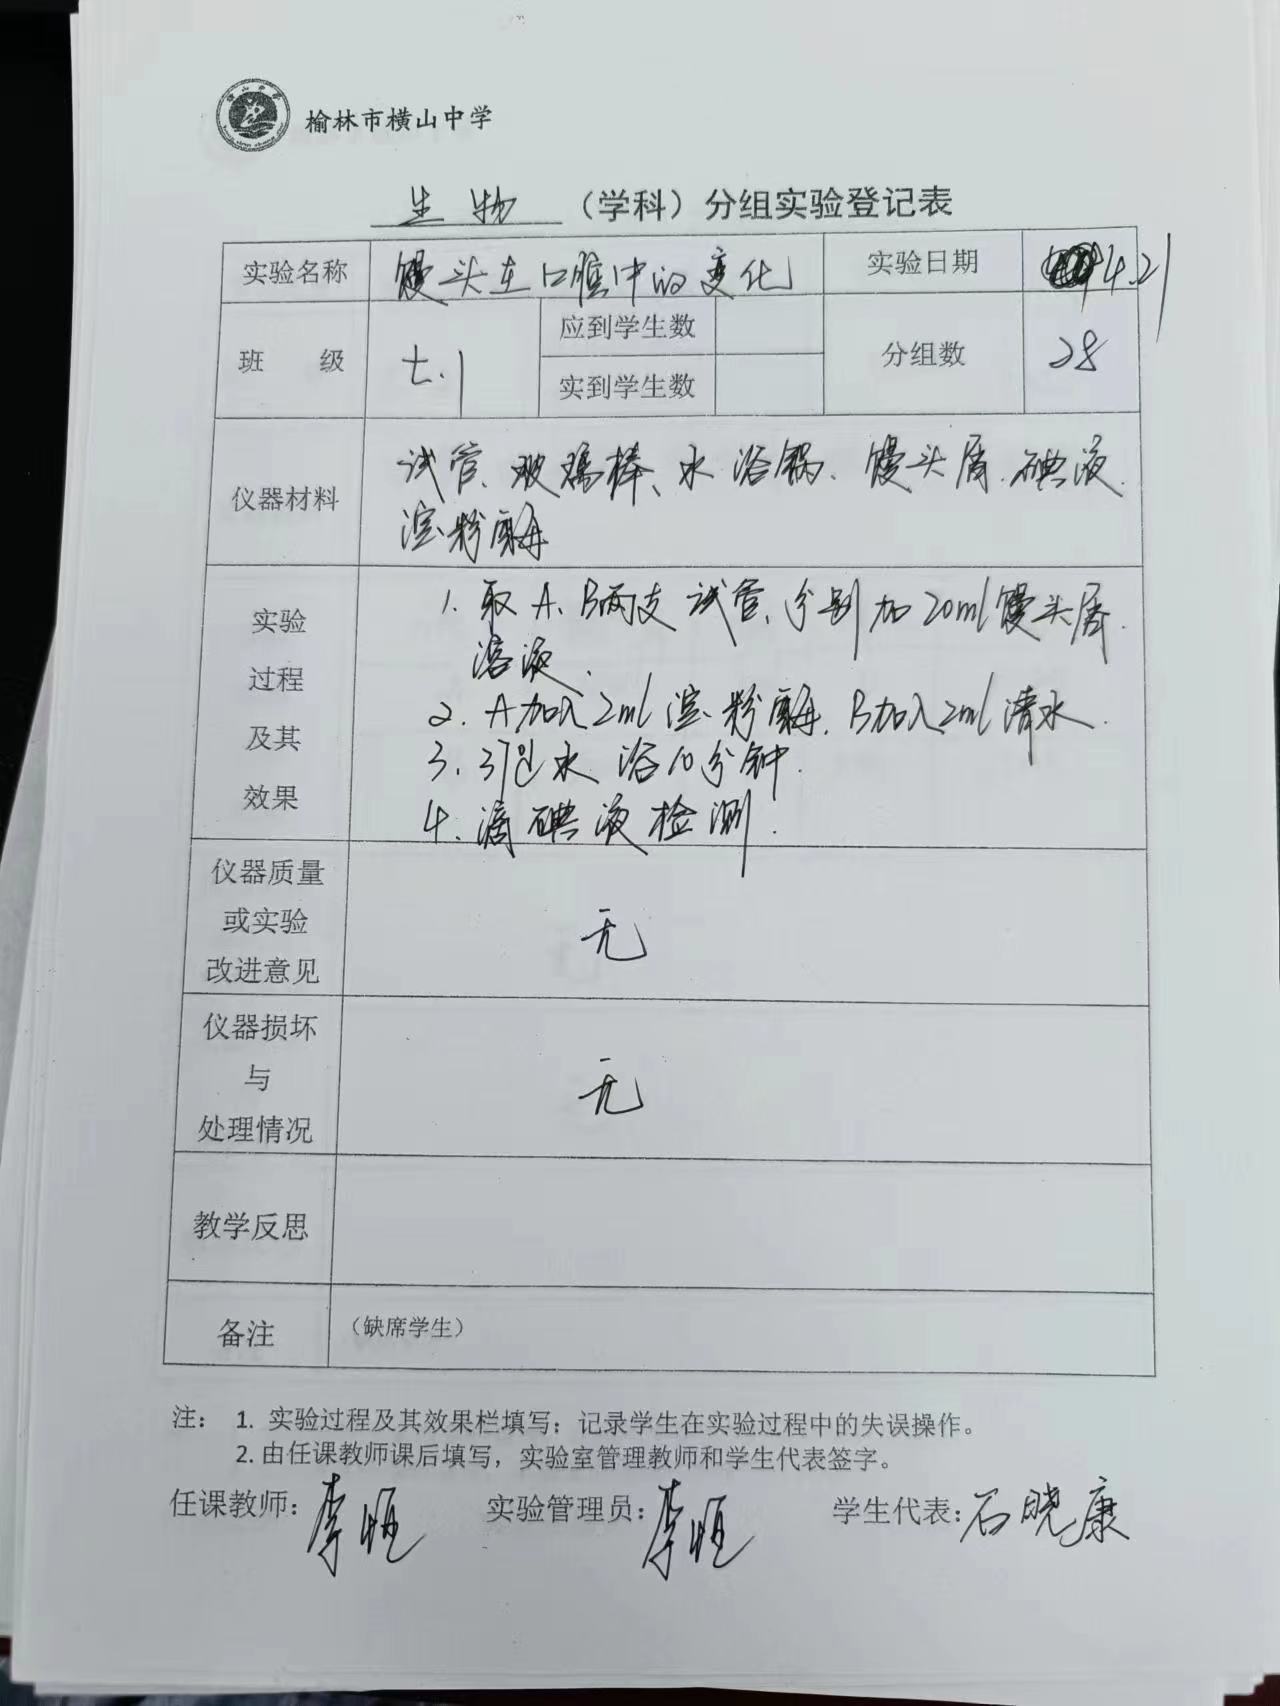 榆林市横山中学
生物（学科）分组实验登记表
实验名称 馒头在口腔中的变化 实验日期 4.21
班 级 七.1 应到学生数 分组数 28
实到学生数
仪器材料 试管、玻璃棒、水浴锅、馒头屑、碘液、
淀粉酶
实验
过程
及其
效果
1. 取A、B两支试管,分别加20ml馒头屑
溶液.
2. A加入2ml淀粉酶,B加入2ml清水.
3. 37℃水浴10分钟.
4. 滴碘液检测.
仪器质量
或实验
改进意见
无
仪器损坏
与
处理情况
无
教学反思
备注 （缺席学生）
注： 1. 实验过程及其效果栏填写；记录学生在实验过程中的失误操作。
2. 由任课教师课后填写，实验室管理教师和学生代表签字。
任课教师：李恒 实验管理员：李恒 学生代表：石晓康